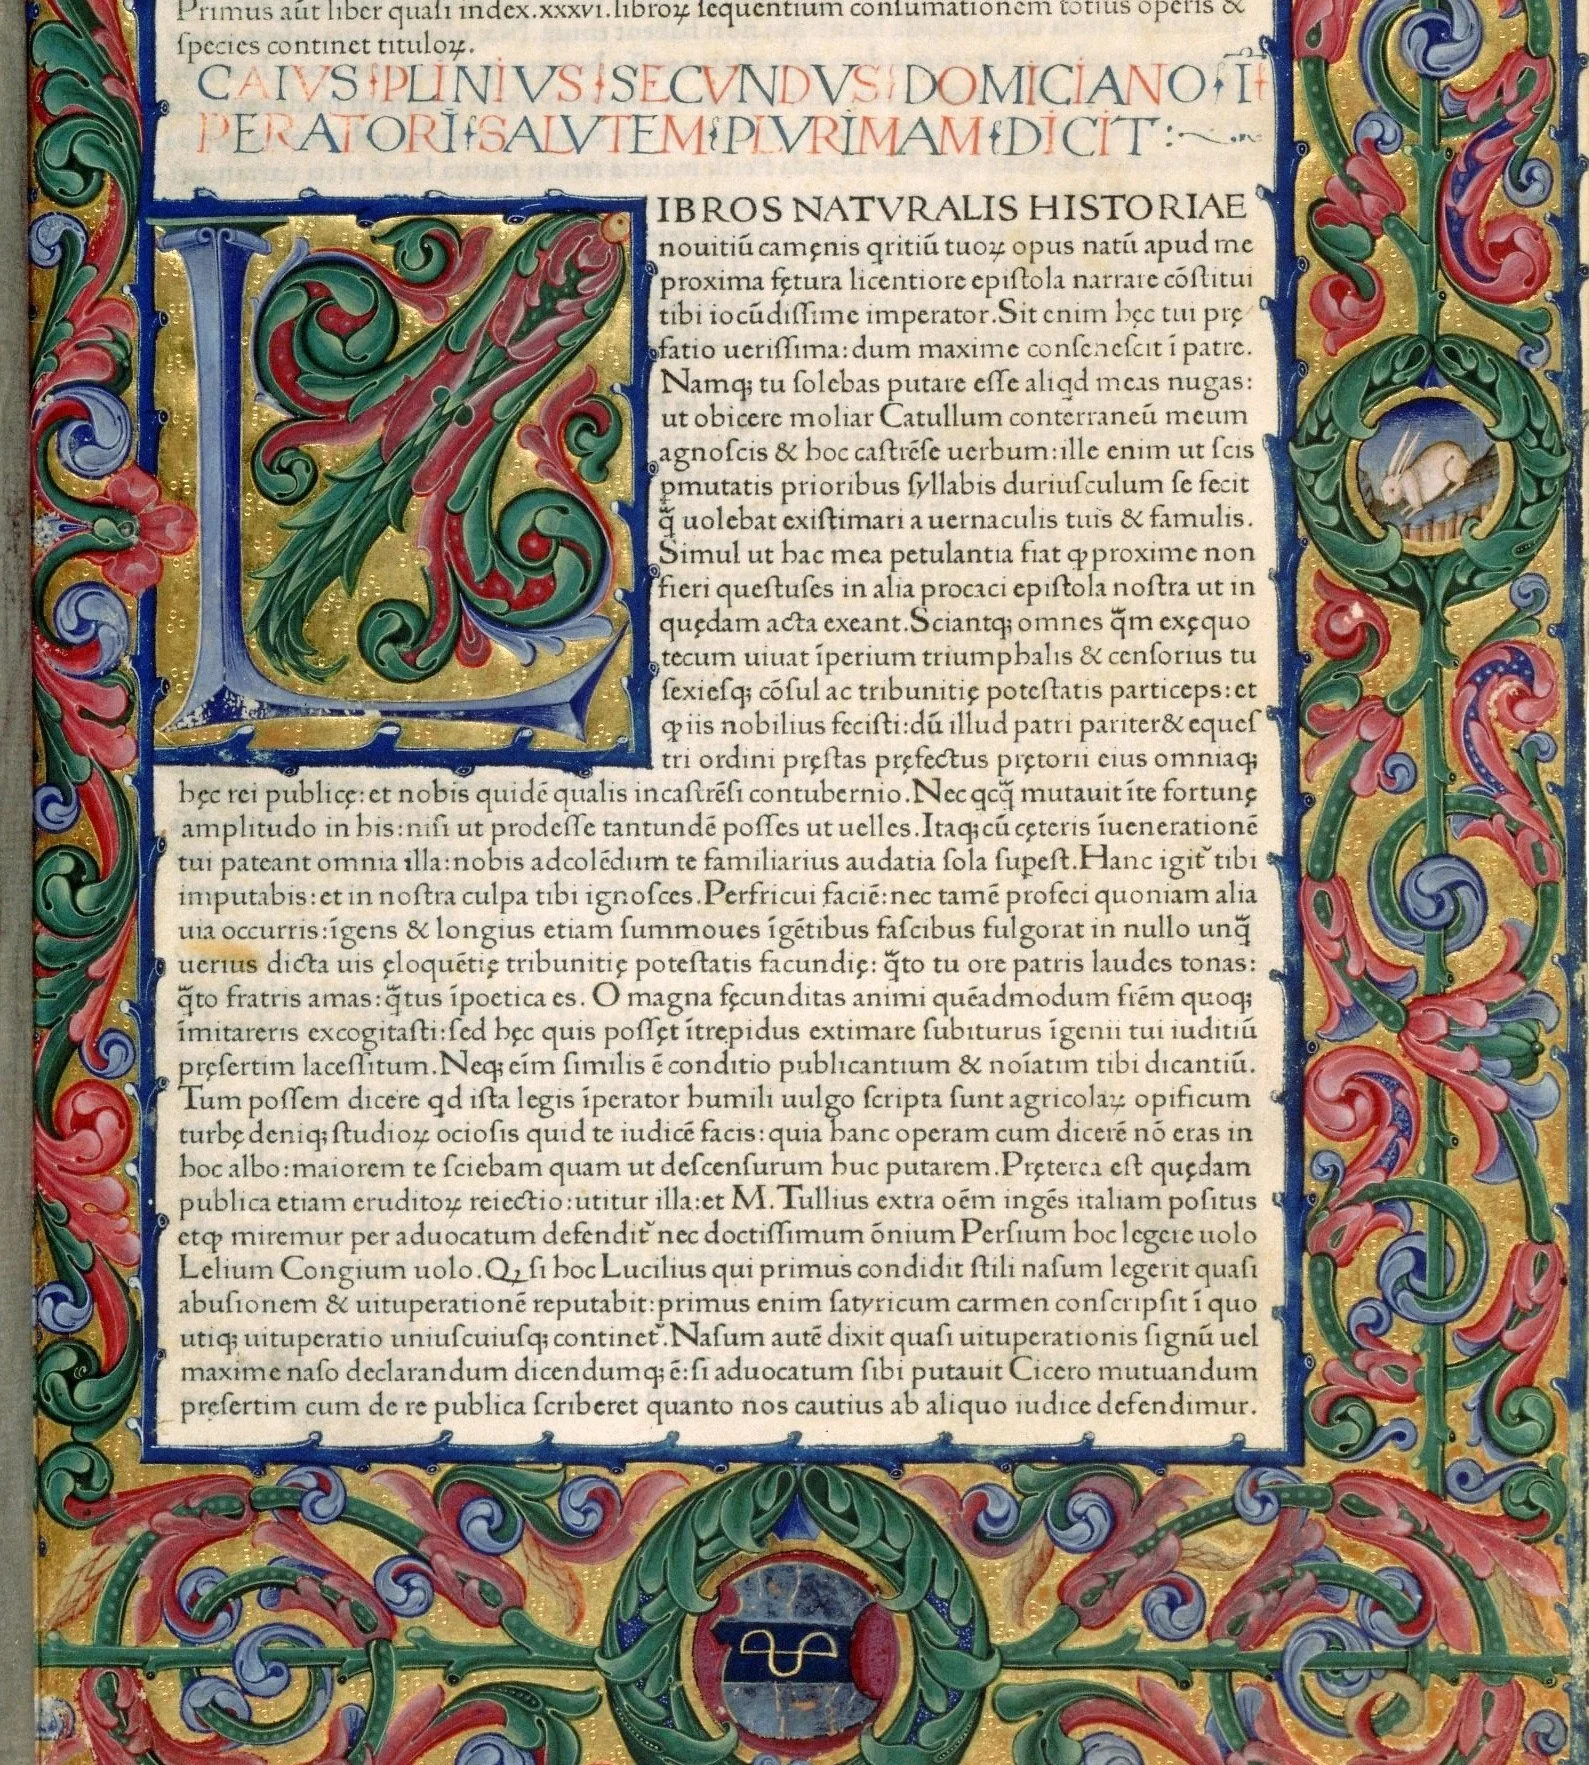 Primus aūt liber quaſi index.xxxvi.libroꝝ ſequentium conſumationem totius operis &
ſpecies continet tituloꝝ.
CAIVS PLINIVS SECVNDVS DOMICIANO Ī
PERATORI SALVTEM PLVRIMAM DICIT:
LIBROS NATVRALIS HISTORIAE
nouitiū camęnis qritiū tuoꝝ opus natū apud me
proxima fętura licentiore epiſtola narrare cōſtitui
tibi iocūdiſſime imperator.Sit enim hęc tui prę
fatio ueriſſima:dum maxime conſeneſcit ī patre.
Namqꝫ tu ſolebas putare eſſe aliqd meas nugas:
ut obicere moliar Catullum conterraneū meum
agnoſcis & hoc caſtrēſe uerbum:ille enim ut ſcis
ꝑmutatis prioribus ſyllabis duriuſculum ſe fecit
q̄̃ uolebat exiſtimari a uernaculis tuis & famulis.
Simul ut hac mea petulantia fiat ꝙ proxime non
fieri queſtuſes in alia procaci epiſtola noſtra ut in
quędam acta exeant.Sciantqꝫ omnes q̄̃m exęquo
tecum uiuat īperium triumphalis & cenſorius tu
ſexieſqꝫ cōſul ac tribunitię poteſtatis particeps:et
ꝙ iis nobilius feciſti:dū illud patri pariter& equeſ
tri ordini pręſtas pręfectus prętorii eius omniaqꝫ
hęc rei publicę:et nobis quidē qualis incaſtrēſi contubernio.Nec qcq̄̃ mutauit īte fortunę
amplitudo in his:niſi ut prodeſſe tantundē poſſes ut uelles.Itaqꝫ cū cęteris īuenerationē
tui pateant omnia illa:nobis adcolēdum te familiarius audatia ſola ſupeſt.Hanc igit᷑ tibi
imputabis:et in noſtra culpa tibi ignoſces.Perfricui faciē:nec tamē profeci quoniam alia
uia occurris:īgens & longius etiam ſummoues īgētibus faſcibus fulgorat in nullo unq̄̃
uerius dicta uis ęloquētię tribunitię poteſtatis facundię: q̄̃to tu ore patris laudes tonas:
q̄̃to fratris amas:q̄̃tus īpoetica es. O magna fęcunditas animi quēadmodum frēm quoqꝫ
īmitareris excogitaſti:ſed hęc quis poſſęt ītrepidus extimare ſubiturus īgenii tui iuditiū
pręſertim laceſſitum.Neqꝫ eīm ſimilis ē conditio publicantium & noīatim tibi dicantiū.
Tum poſſem dicere qd iſta legis īperator humili uulgo ſcripta ſunt agricolaꝝ opificum
turbę deniqꝫ ſtudioꝝ ocioſis quid te iudicē facis:quia hanc operam cum dicerē nō eras in
hoc albo:maiorem te ſciebam quam ut deſcenſurum huc putarem.Pręterea eſt quędam
publica etiam eruditoꝝ reiectio:utitur illa:et M.Tullius extra oēm ingēs italiam poſitus
etꝙ miremur per aduocatum defendit᷑ nec doctiſſimum ōnium Perſium hoc legere uolo
Lelium Congium uolo.Qꝫ ſi hoc Lucilius qui primus condidit ſtili naſum legerit quaſi
abuſionem & uituperationē reputabit:primus enim ſatyricum carmen conſcripſit ī quo
utiqꝫ uituperatio uniuſcuiuſqꝫ continet᷑.Naſum autē dixit quaſi uituperationis ſignū uel
maxime naſo declarandum dicendumqꝫ ē:ſi aduocatum ſibi putauit Cicero mutuandum
pręſertim cum de re publica ſcriberet quanto nos cautius ab aliquo iudice defendimur.